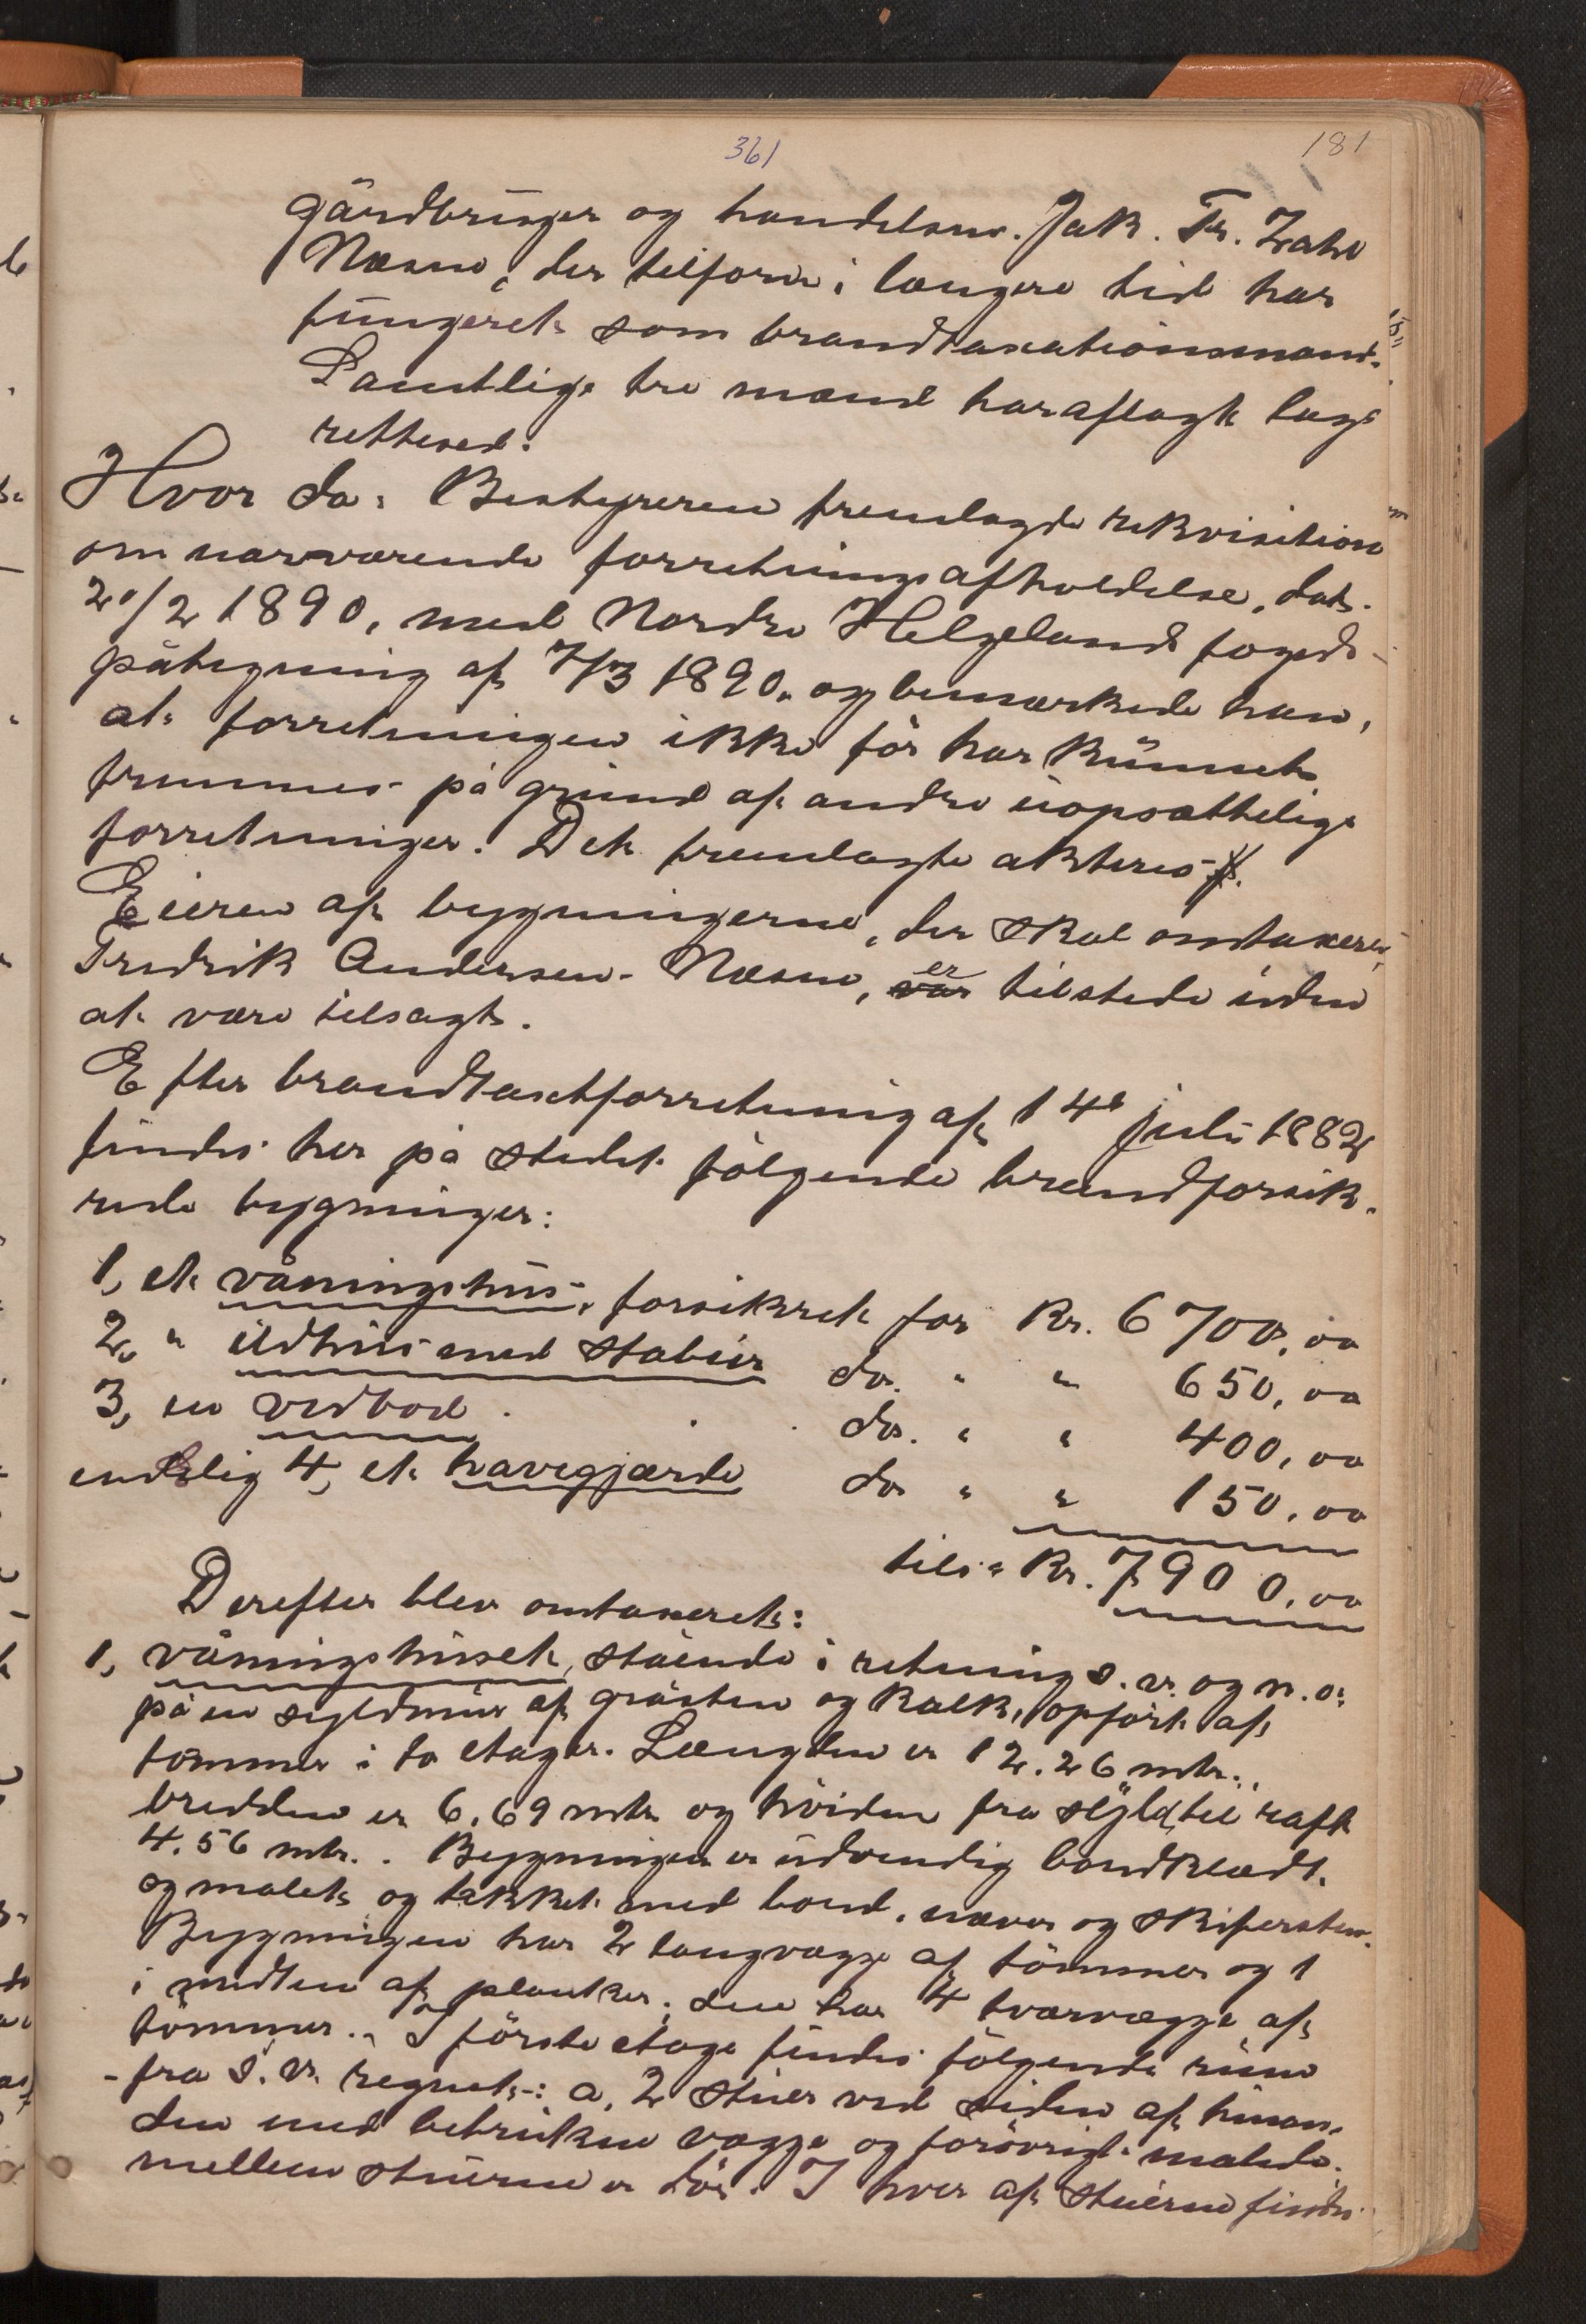 361
181
gårdbruger og handelsm. Jak. Fr. Zahl
Næsne, der tilforn i længere tid har
fungeret som brandtaxationsmand.
Samtlige tre mænd har aflagt lag-
rettesed.
Hvor da: Bestyreren fremlagde rekvisition
om nærværende forretnings afholdelse, dat.
20/2 1890, med Nordre Helgelands fogeds
påtegning af 7/3 1890, og bemærkede han,
at forretningen ikke før har kunnet
fremmes på grund af andre uopsættelige
forretninger. Det fremlagte akteres
Eieren af bygningerne, der skal omtaxeres,
Fredrik Andersen Næsne, var er tilstede uden
at være tilsagt.
Efter brandtaxtforretning af 14de juli 1882
findes her på stedet følgende brandforsik-
rede bygninger:
1, et våningshus, forsikret for Kr. 6700,00
2, " ildhus med stabur do. " " 650,00
3, en vedbod . . . do. " " 400,00
endelig 4, et havegjærde do " " 150,00
tils. Kr. 7900,00
Derefter blev omtaxeret:
1, våningshuset, stående i retning s.v. og n.o.
på en syldmur af gråsten og kalk, opført af
tømmer i to etager. Længden er 12.26 mtr.,
bredden er 6,69 mtr og høiden fra syld til raft
4.56 mtr. . Bygningen er udvendig bordklædt
og malet og tækket med bord, næver og skifersten.
Bygningen har 2 langvægge af tømmer og 1
i midten af planker; den har 4 tværvægge af
tømmer. I første etage findes følgende rum
- fra s.v. regnet -: a, 2 stuer ved siden af hinan-
den med betrukne vægge og forøvrigt malede.
mellem stuerne er dør. I hver af stuerne findes